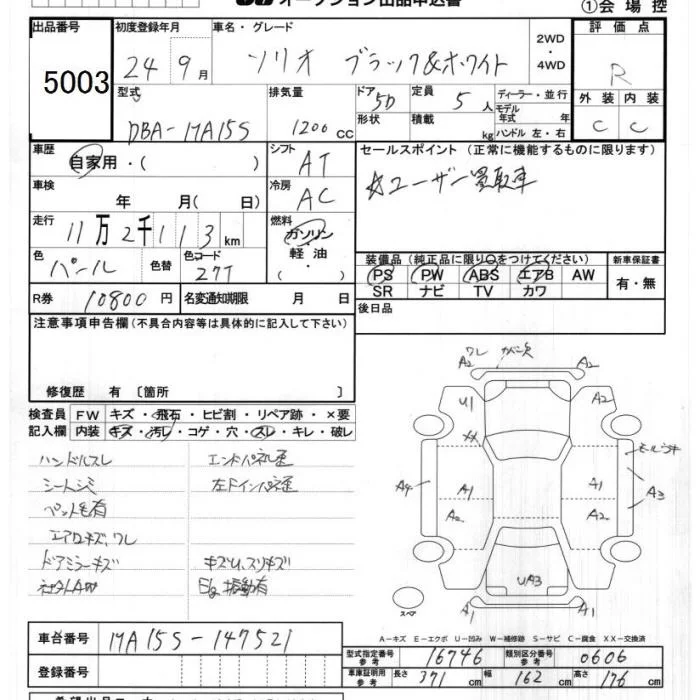 オークション出品申込書 ①会場控
出品番号 初度登録年月 車名・グレード 評価点
5003 24年9月 ソリオ ブラック&ホワイト 2WD・4WD R
型式 排気量 ドア 5D 定員 5人 ディーラー・並行 外装 内装
DBA-MA15S 1200cc 形状 積載 kg モデル年式 年 ハンドル 左・右 C C
車歴 シフト セールスポイント (正常に機能するものに限ります)
自家用・( ) AT ☆ユーザー買取車
車検 年 月( 日) 冷房 AC
走行 11万2千113km 燃料 ガソリン・軽油・( )
色 パール 色替 色コード 27T
装備品 (純正品に限り○をつけてください) 新車保証書
PS PW ABS エアB AW 有・無
SR ナビ TV カワ
R券 10800円 名変通知期限 月 日
後日品
注意事項申告欄(不具合内容等は具体的に記入して下さい)
修復歴 有 [箇所 ]
検査員記入欄 FW キズ・飛石・ヒビ割・リペア跡・×要
内装 キズ・汚レ・コゲ・穴・スレ・キレ・破レ
ハンドルスレ エンドパネル歪
シートシミ 左ドインパネ歪
ペット毛有
エアロキズ、ワレ
ドアミラーキズ キズU、スリキズ
社外LAW Eg振動有
A2 ワレ ガバ欠 A2
U1 A2
XX モール浮キ
A4 A1 A1 A3
A2 A2
UA3
A1 A1
スペア
A-キズ E-エクボ U-凹み W-補修跡 S-サビ C-腐食 XX-交換済
車台番号 MA15S-147521
登録番号
型式指定番号 参考 16746 類別区分番号 参考 0606
車庫証明用 参考 長さ 371cm 幅 162cm 高さ 176cm